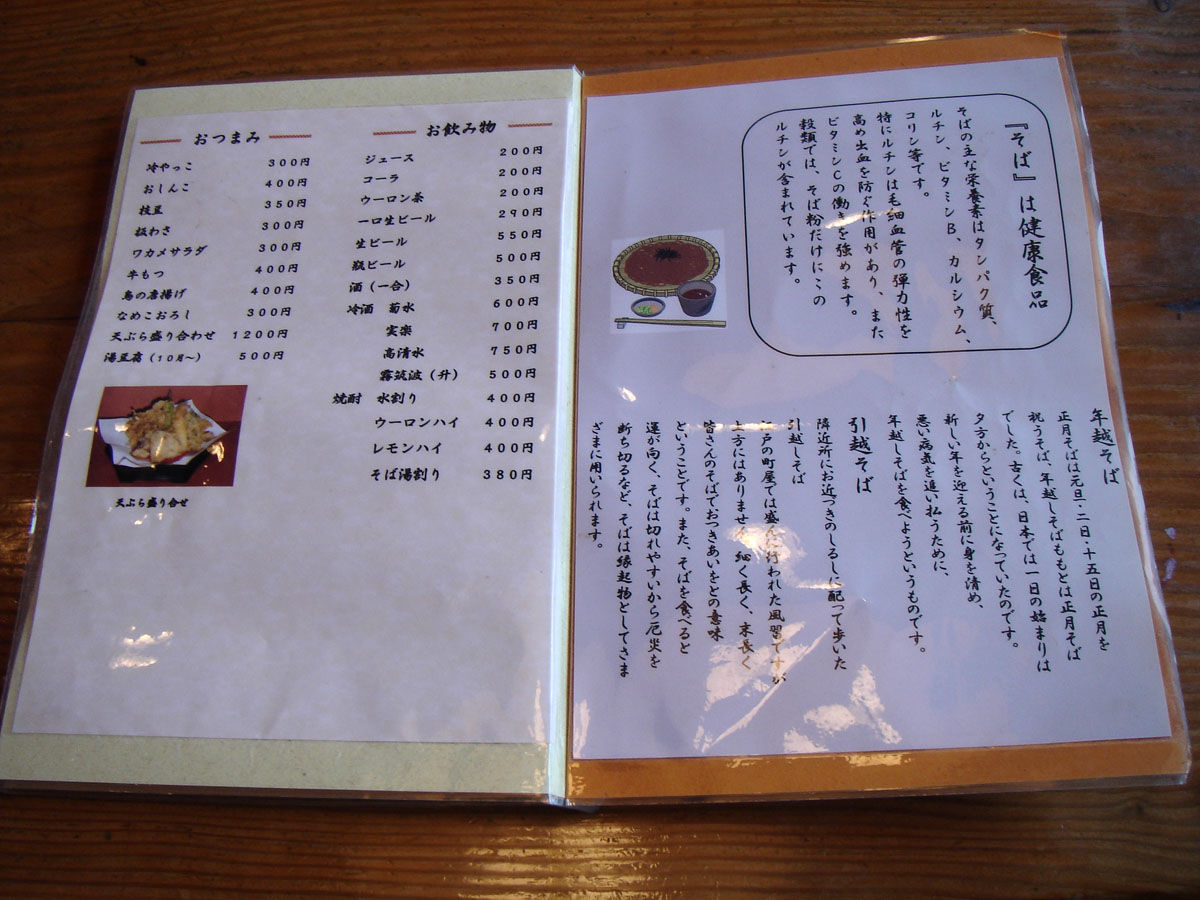 おつまみ
冷やっこ 300円
おしんこ 400円
枝豆 350円
板わさ 300円
ワカメサラダ 300円
牛もつ 400円
鳥の唐揚げ 400円
なめこおろし 300円
天ぷら盛り合わせ 1200円
湯豆腐(10月〜) 500円
天ぷら盛り合せ
お飲み物
ジュース 200円
コーラ 200円
ウーロン茶 200円
一口生ビール 290円
生ビール 550円
瓶ビール 500円
酒(一合) 350円
冷酒 菊水 600円
実楽 700円
高清水 750円
霧筑波(升) 500円
焼酎 水割り 400円
ウーロンハイ 400円
レモンハイ 400円
そば湯割り 380円
『そば』は健康食品
そばの主な栄養素はタンパク質、
ルチン、ビタミンB、カルシウム、
コリン等です。
特にルチンは毛細血管の弾力性を
高め出血を防ぐ作用があり、また
ビタミンCの働きを強めます。
穀類では、そば粉だけにこの
ルチンが含まれています。
年越そば
正月そばは元旦・二日・十五日の正月を
祝うそば、年越しそばももとは正月そば
でした。古くは、日本では一日の始まりは
夕方からということになっていたのです。
新しい年を迎える前に身を清め、
悪い病気を追い払うために、
年越しそばを食べようというものです。
引越そば
隣近所にお近づきのしるしに配って歩いた
引越しそば
江戸の町屋では盛んに行われた風習ですが
上方にはありません。細く長く、末長く
皆さんのそばでおつきあいをとの意味
ということです。また、そばを食べると
運が向く、そばは切れやすいから厄災を
断ち切るなど、そばは縁起物としてさま
ざまに用いられます。